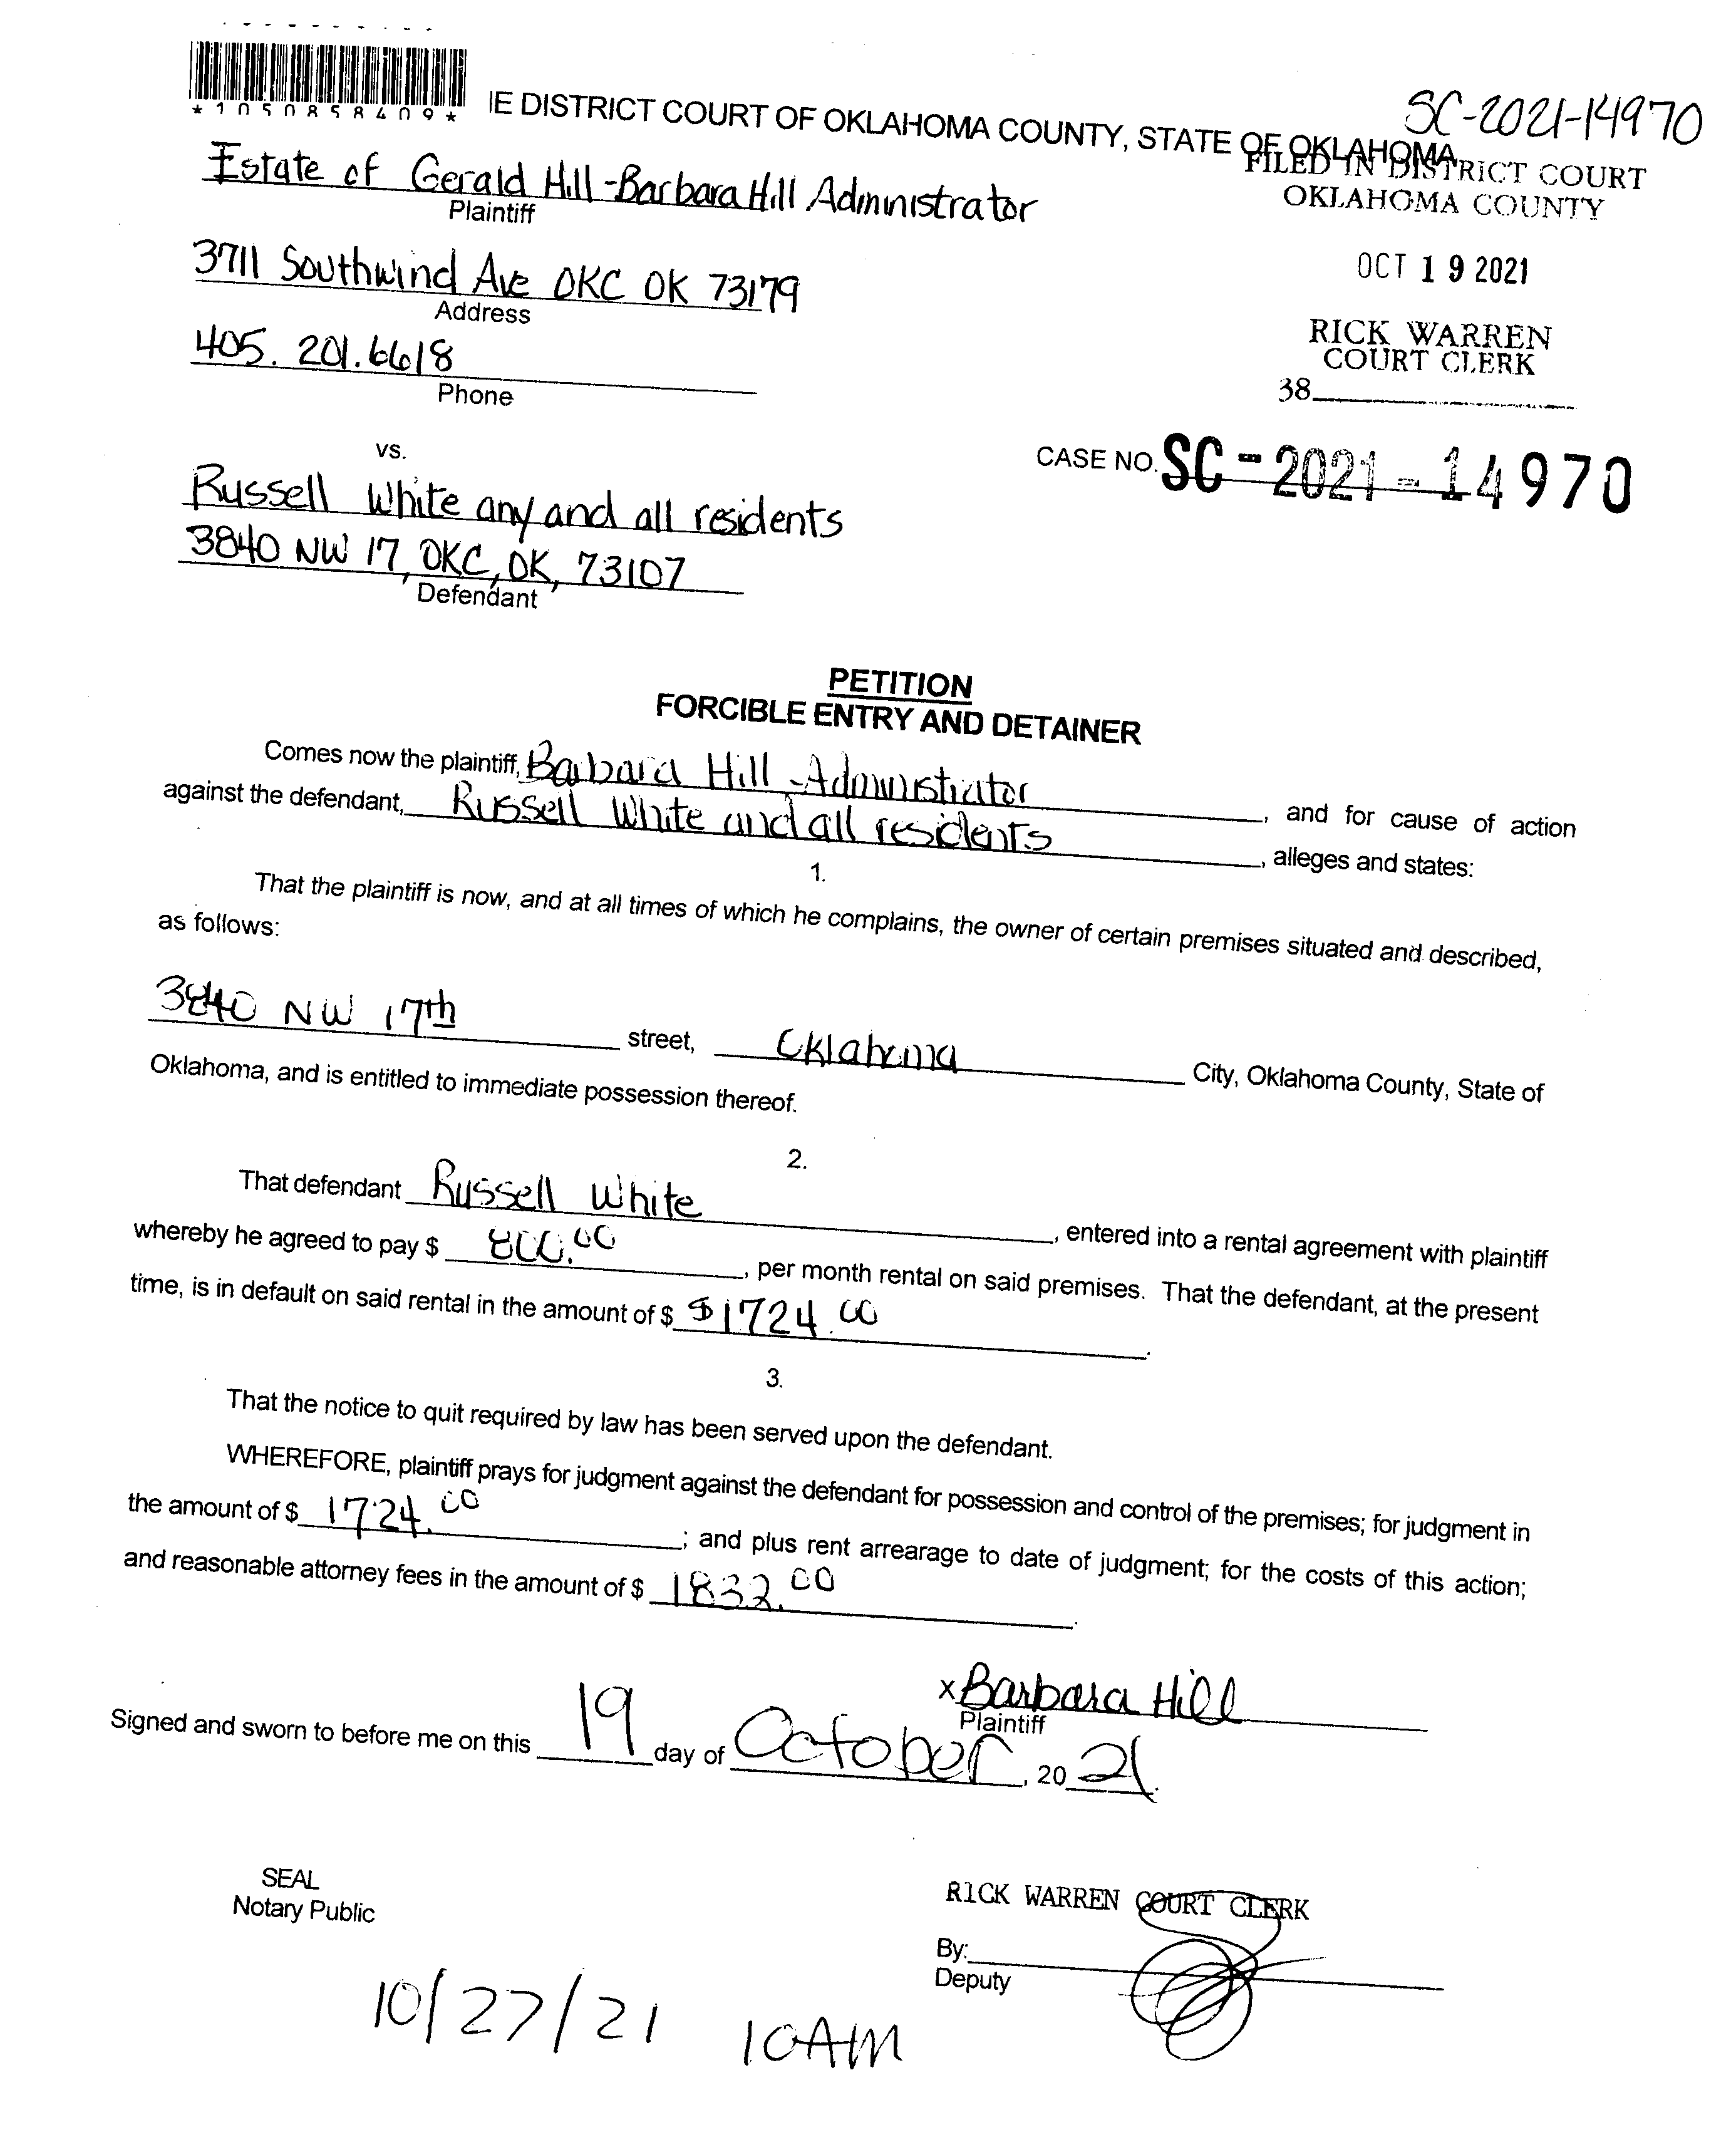 *1050858409*
IE DISTRICT COURT OF OKLAHOMA COUNTY, STATE OF OKLAHOMA
SC-2021-14970
FILED IN DISTRICT COURT
OKLAHOMA COUNTY
OCT 19 2021
RICK WARREN
COURT CLERK
38
Estate of Gerald Hill-Barbara Hill Administrator
Plaintiff
3711 Southwind Ave OKC OK 73179
Address
405.201.6618
Phone
vs.
CASE NO. SC-2021-14970
Russell White any and all residents
3840 NW 17, OKC, OK, 73107
Defendant
PETITION
FORCIBLE ENTRY AND DETAINER
Comes now the plaintiff, Barbara Hill -Administrator, and for cause of action
against the defendant, Russell White and all residents, alleges and states:
1.
That the plaintiff is now, and at all times of which he complains, the owner of certain premises situated and described,
as follows:
3840 NW 17th street, Oklahoma City, Oklahoma County, State of
Oklahoma, and is entitled to immediate possession thereof.
2.
That defendant Russell White, entered into a rental agreement with plaintiff
whereby he agreed to pay $ 800.00, per month rental on said premises. That the defendant, at the present
time, is in default on said rental in the amount of $ $1724.00.
3.
That the notice to quit required by law has been served upon the defendant.
WHEREFORE, plaintiff prays for judgment against the defendant for possession and control of the premises; for judgment in
the amount of $ 1724.00; and plus rent arrearage to date of judgment; for the costs of this action;
and reasonable attorney fees in the amount of $ 1832.00.
x Barbara Hill
Plaintiff
Signed and sworn to before me on this 19 day of October, 2021.
SEAL
Notary Public
RICK WARREN COURT CLERK
By:
Deputy
10/27/21 10AM